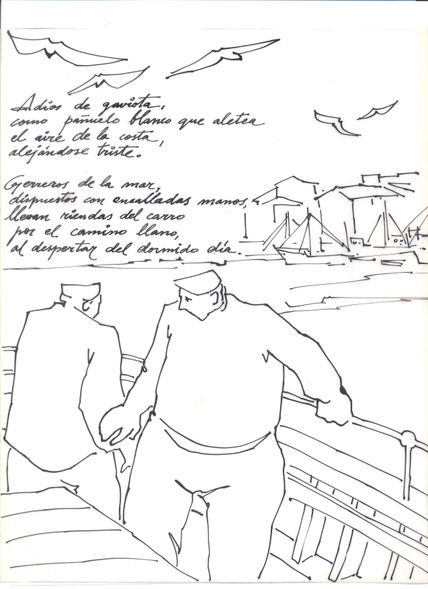 Adios de gaviota,
como pañuelo blanco que aletea
el aire de la costa,
alejándose triste.
Gerreros de la mar,
dispuestos con encalladas manos,
llevan riendas del carro
por el camino llano,
al despertar del dormido día.